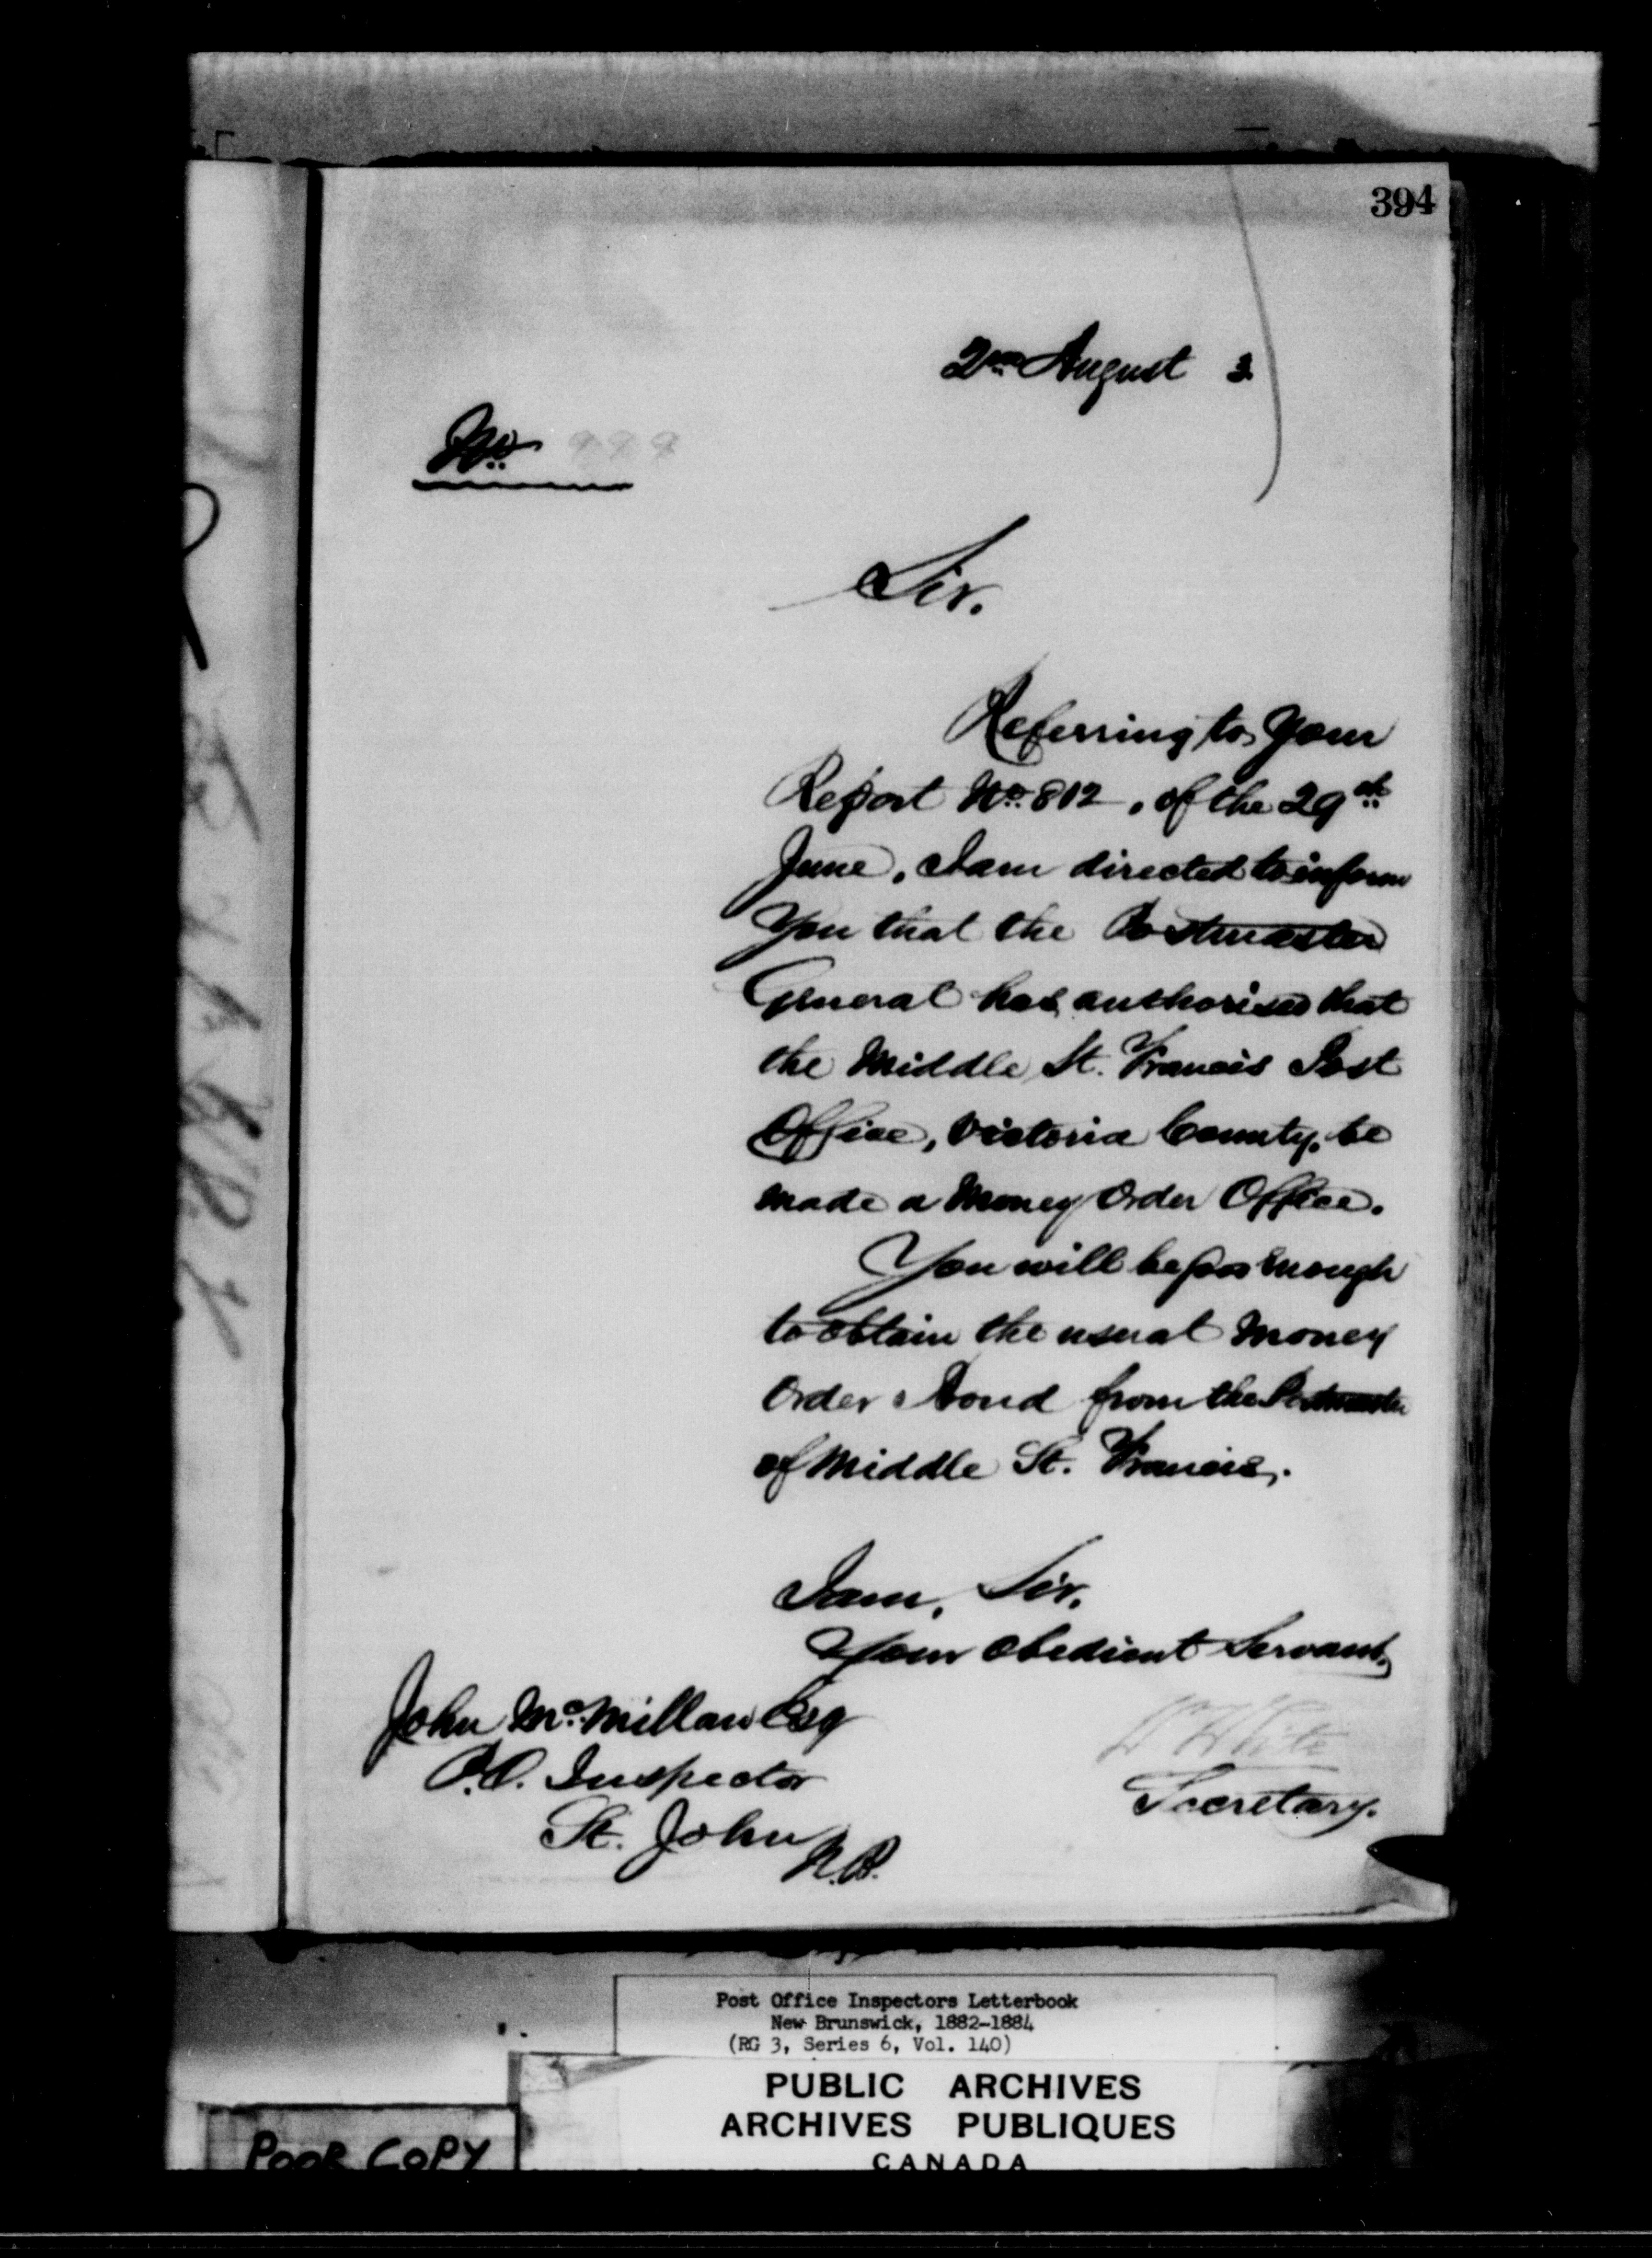 394
2nd August 3
No. 999
Sir.
Referring to your
Report No. 812, of the 29th
June, I am directed to inform
you that the Postmaster
General has authorised that
the Middle St. Francis Post
Office, Victoria County, be
made a Money Order Office.
You will be good enough
to obtain the usual Money
Order Bond from the Postmaster
of Middle St. Francis.
I am, Sir,
Your obedient Servant,
John McMillan Esq
P.O. Inspector
St. John
N.B.
W White
Secretary.
Post Office Inspectors Letterbook
New Brunswick, 1882-1884
(RG 3, Series 6, Vol. 140)
PUBLIC ARCHIVES
ARCHIVES PUBLIQUES
CANADA
POOR COPY